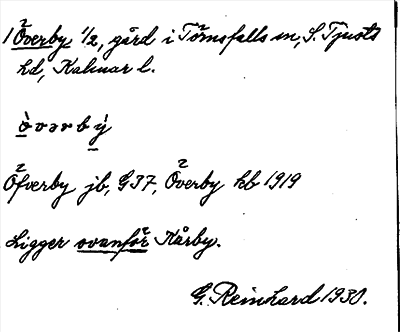 1 Överby ½, gård i Törnsfalls sn, S. Tjusts
hd, Kalmar l.
òvərbý
Öfverby jb, G37, Överby kb 1919
Ligger ovanför Kårby.
G. Reinhard 1930.